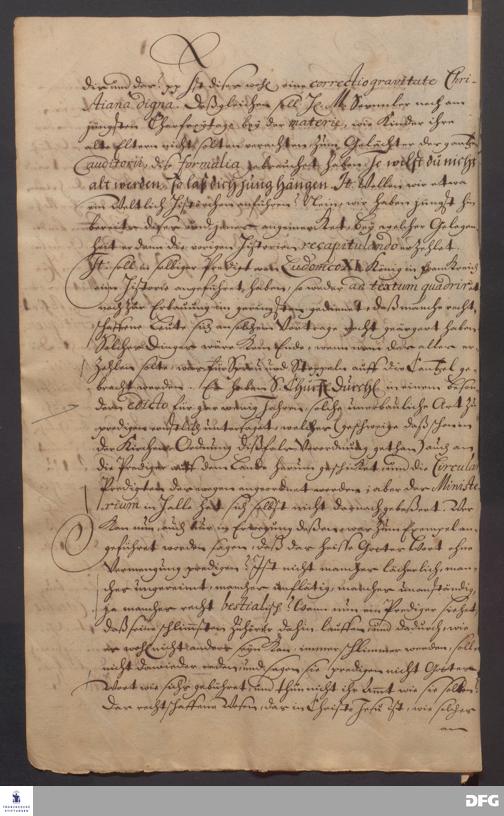 dir und der pp Ist diser wohl eine correctio gravitate Chri-
stiana digna. Deßgleichen soll H. M. Semler noch am
jüngsten Charfreytage bey der materie, wie Kinder ihre
alte Eltern nicht selten verachten zum Gelächter der gantzen
auditorii, diese formalia gebrauchet haben: So wilst du nicht
alt werden, so laß dich jung hängen. It. Wollen wir etwa
ein Weltlich Historchen anführen? Nein, wir haben jüngst hie
bevor
heit er dann die vorigen Historien recapitulando erzehlet.
It. soll in selbiger Predigt von Ludovico XI. König in Franckreich
eine Historie angeführet haben, so weder ad textum quadriret
noch zur Erbauung im geringsten gedienet, daß manche recht-
schaffene Leute sich an solchem Vortrage recht geärgert haben.
Solcher Dinge wäre kein Ende, wenn man das alles er-
zehlen solte, was für Spreu und Stoppeln auff die Cantzel ge-
bracht werden. Es haben S. Churf. Durchl. in einem beson-
dern Edicto für gar wenig Jahren, solche unerbauliche Art zu
predigen ernstlich untersaget, welches (geschweige daß schon in
der Kirchen Ordnung dißfals Verordnung gethan) auch an
die Prediger auff dem Lande herum geschicket, und die Circular
Predigten deswegen angeordnet worden, aber das Ministe-
rium in Halle hat sich selbst nicht darnach gebeßert. Wer
kan nun, auch nur in Erwegung deßen, was zum Exempel an-
geführet worden, sagen, daß das heisse Gottes Wort ohne
Vermengung predigen? Ist nicht manches lächerlich, man-
ches ungereimt, manches unflätig, manches unanständig,
ja manches recht bestialisch? Wenn nun ein Prediger siehet,
daß seine schlimmsten Zuhörer dahin lauffen, und dadurch, wie
es wohl nicht anders seyn kan, immer schlimmer werden, soll er
nicht darwieder reden, und sagen, sie predigen nicht Gottes
Wort wie sichs gebühret, und thun nicht ihr Amt wie sie solten?
Das rechtschaffene Wesen, das in Christo Jesu ist, wie solches
an
FRANCKESCHE
STIFTUNGEN
DFG